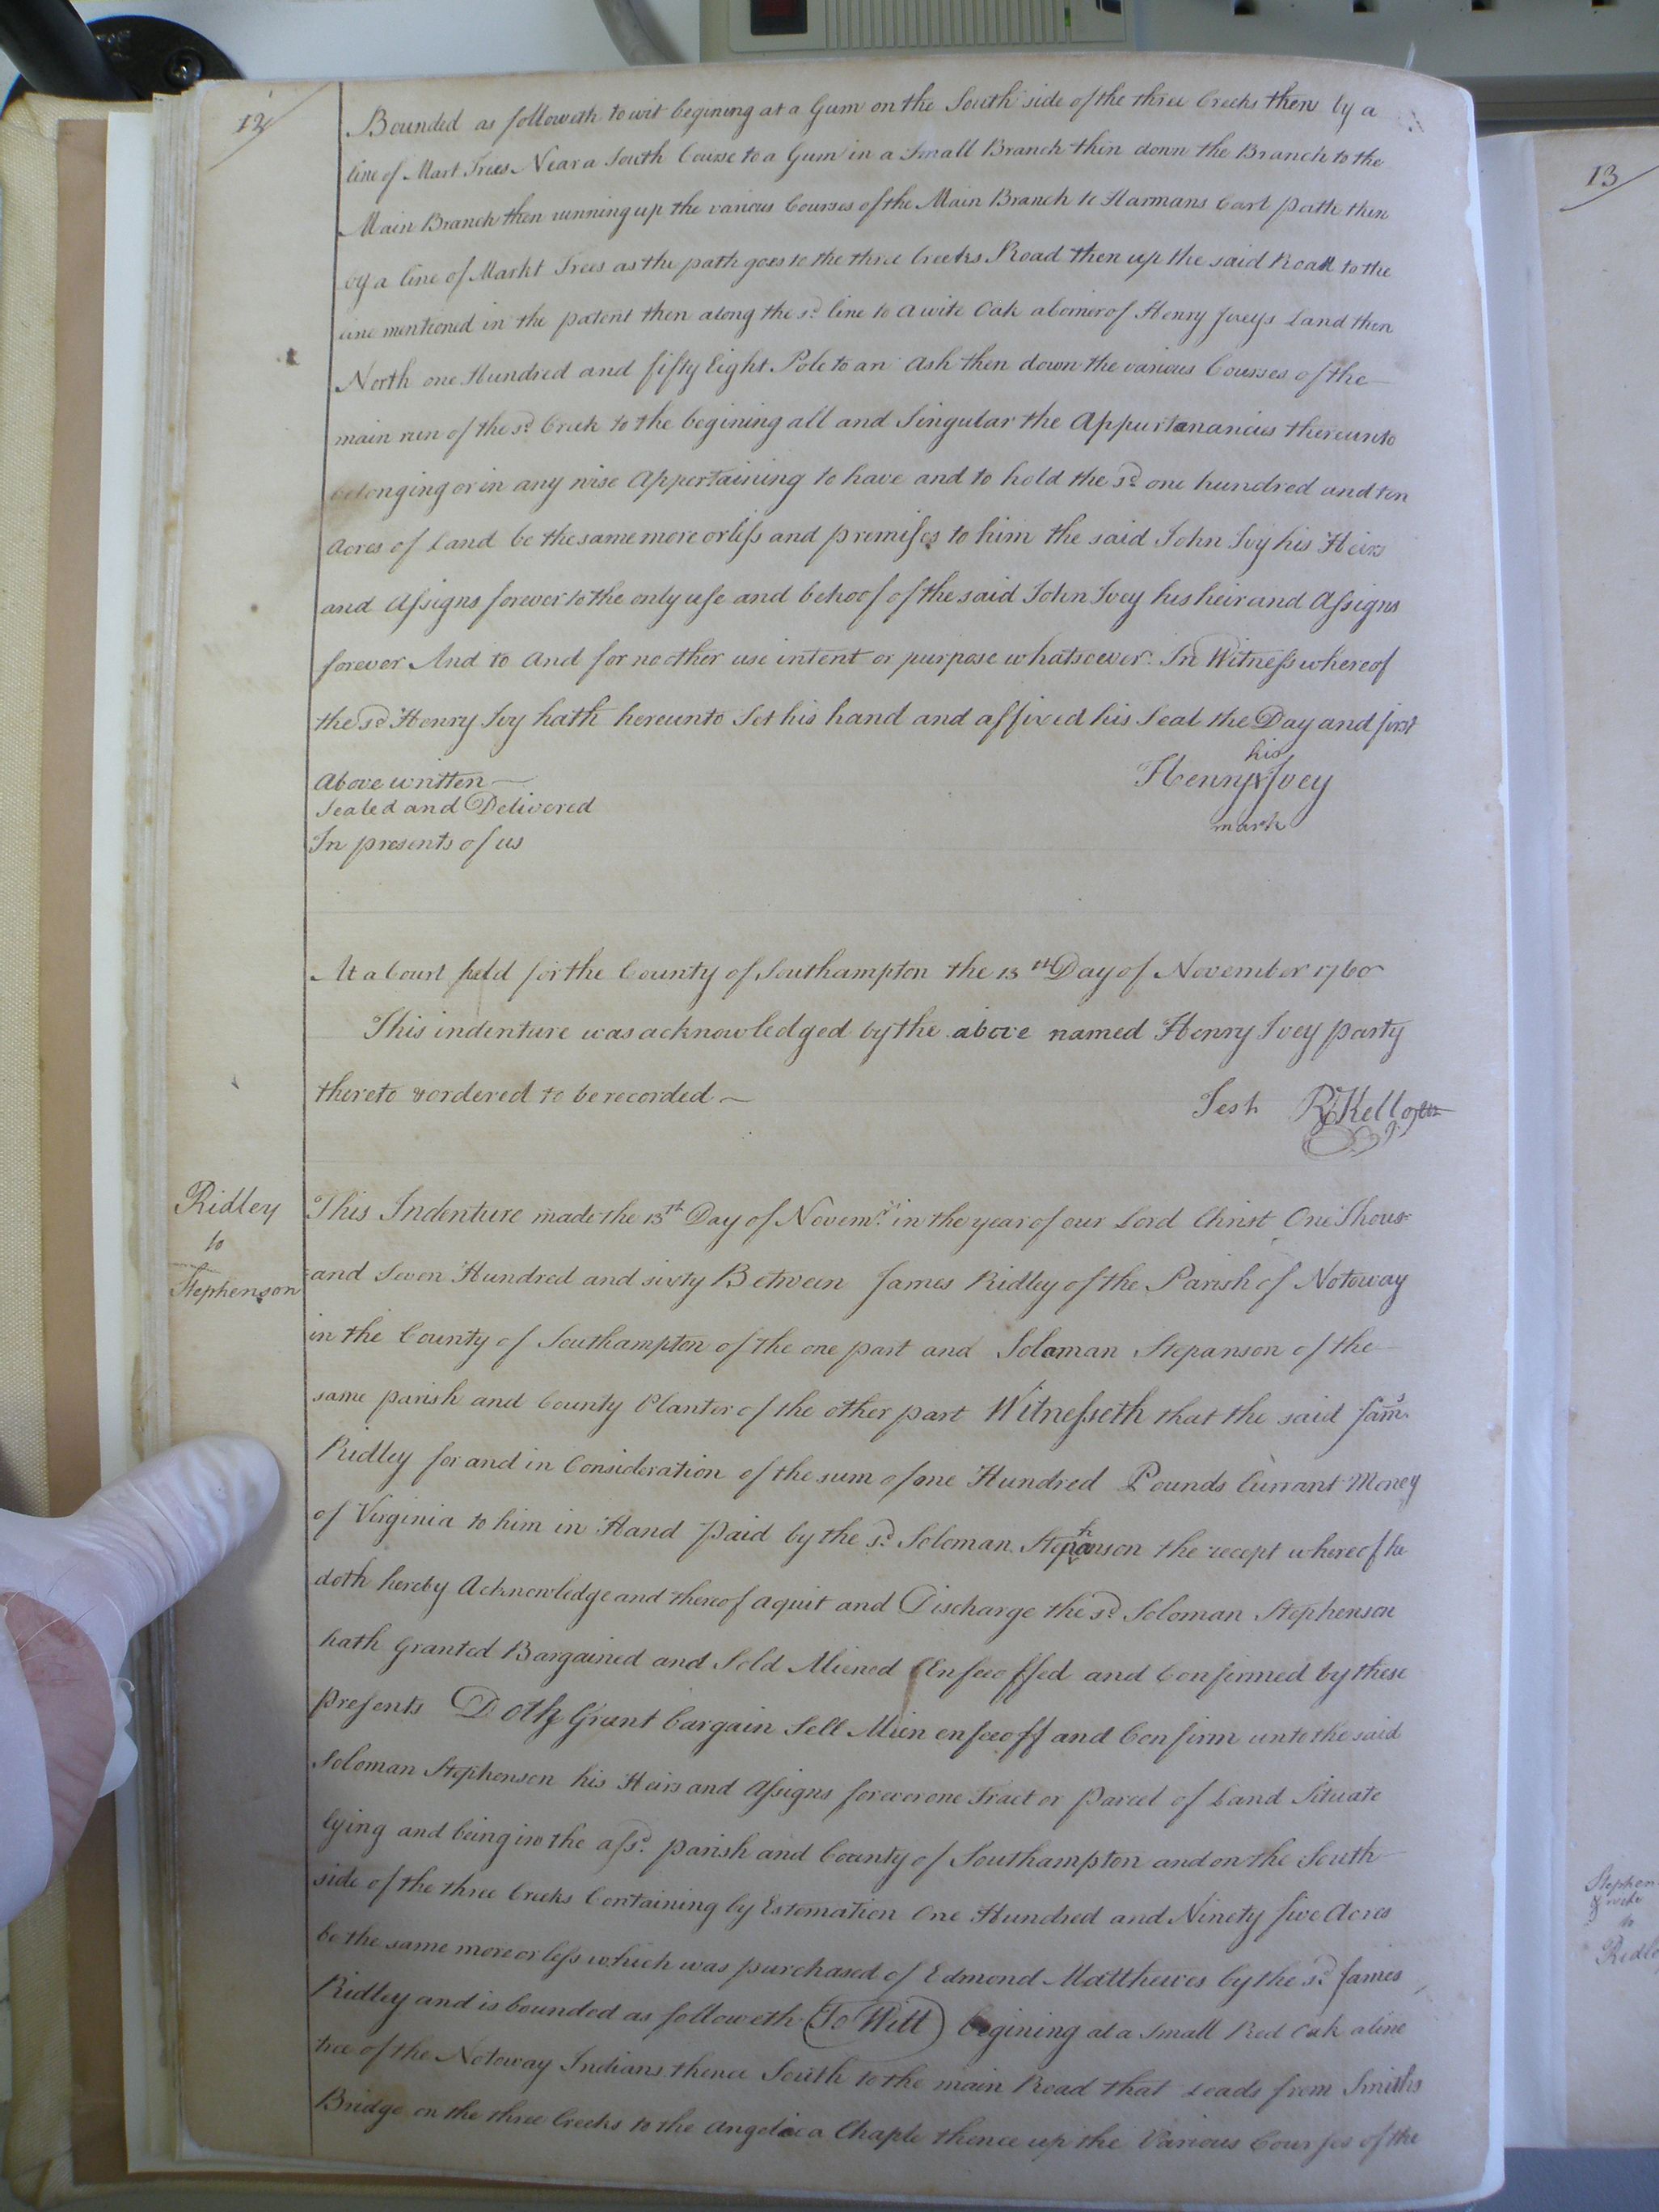 12
Bounded as followeth to wit begining at a Gum on the South side of the three Creeks then by a
line of Mart Trees Near a South Course to a Gum in a Small Branch then down the Branch to the
Main Branch then running up the various Courses of the Main Branch to Harmans Cart path then
by a line of Markt Trees as the path goes to the three Creeks Road then up the said Road to the
line mentioned in the patent then along the sd. line to a wite Oak a corner of Henry Iveys Land then
North one Hundred and fifty Eight Pole to an Ash then down the various Courses of the
main run of the sd. Creek to the begining all and Singular the Appurtanancies thereunto
belonging or in any wise Appertaining to have and to hold the sd. one hundred and ten
Acres of Land be the same more or less and premises to him the said John Ivy his Heirs
and Assigns forever to the only use and behoof of the said John Ivey his heir and Assigns
forever And to And for no other use intent or purpose whatsoever. In Witness whereof
the sd. Henry Ivy hath hereunto Set his hand and affixed his Seal the Day and first
Above written —
Sealed and Delivered
In presents of us
his
Henry Ivey
mark
At a Court held for the County of Southampton the 13th Day of November 1760
This indenture was acknowledged by the above named Henry Ivey party
thereto & ordered to be recorded —
Test R Kello
Ridley
to
Stephenson
This Indenture made the 13th Day of Novemr. in the year of our Lord Christ One Thous
and Seven Hundred and sixty Between James Ridley of the Parish of Notoway
in the County of Southampton of the one part and Soloman Stepanson of the
same parish and County Planter of the other part Witnesseth that the said Jams.
Ridley for and in Consideration of the sum of one Hundred Pounds Currant Money
of Virginia to him in Hand Paid by the sd. Soloman Stephanson the recept whereof he
doth hereby Acknowledge and thereof aquit and Discharge the sd. Soloman Stephenson
hath Granted Bargained and Sold Aliened Enfeoffed and Confirmed by these
Presents Doth Grant bargain Sell Alien enfeeoff and Confirm unto the said
Soloman Stephenson his Heirs and Assigns forever one Tract or Parcel of Land Situate
lying and being in the afsd. parish and County of Southampton and on the South
side of the three Creeks Containing by Estemation One Hundred and Ninety five Acres
be the same more or less which was purchased of Edmond Matthewes by the sd. James
Ridley and is bounded as followeth (To Witt) begining at a Small Red Oak a line
tree of the Notoway Indians thence South to the main Road that Leads from Smiths
Bridge on the three Creeks to the Angelica Chaple thence up the Various Courses of the
13
Stephen
& wife
to
Ridl